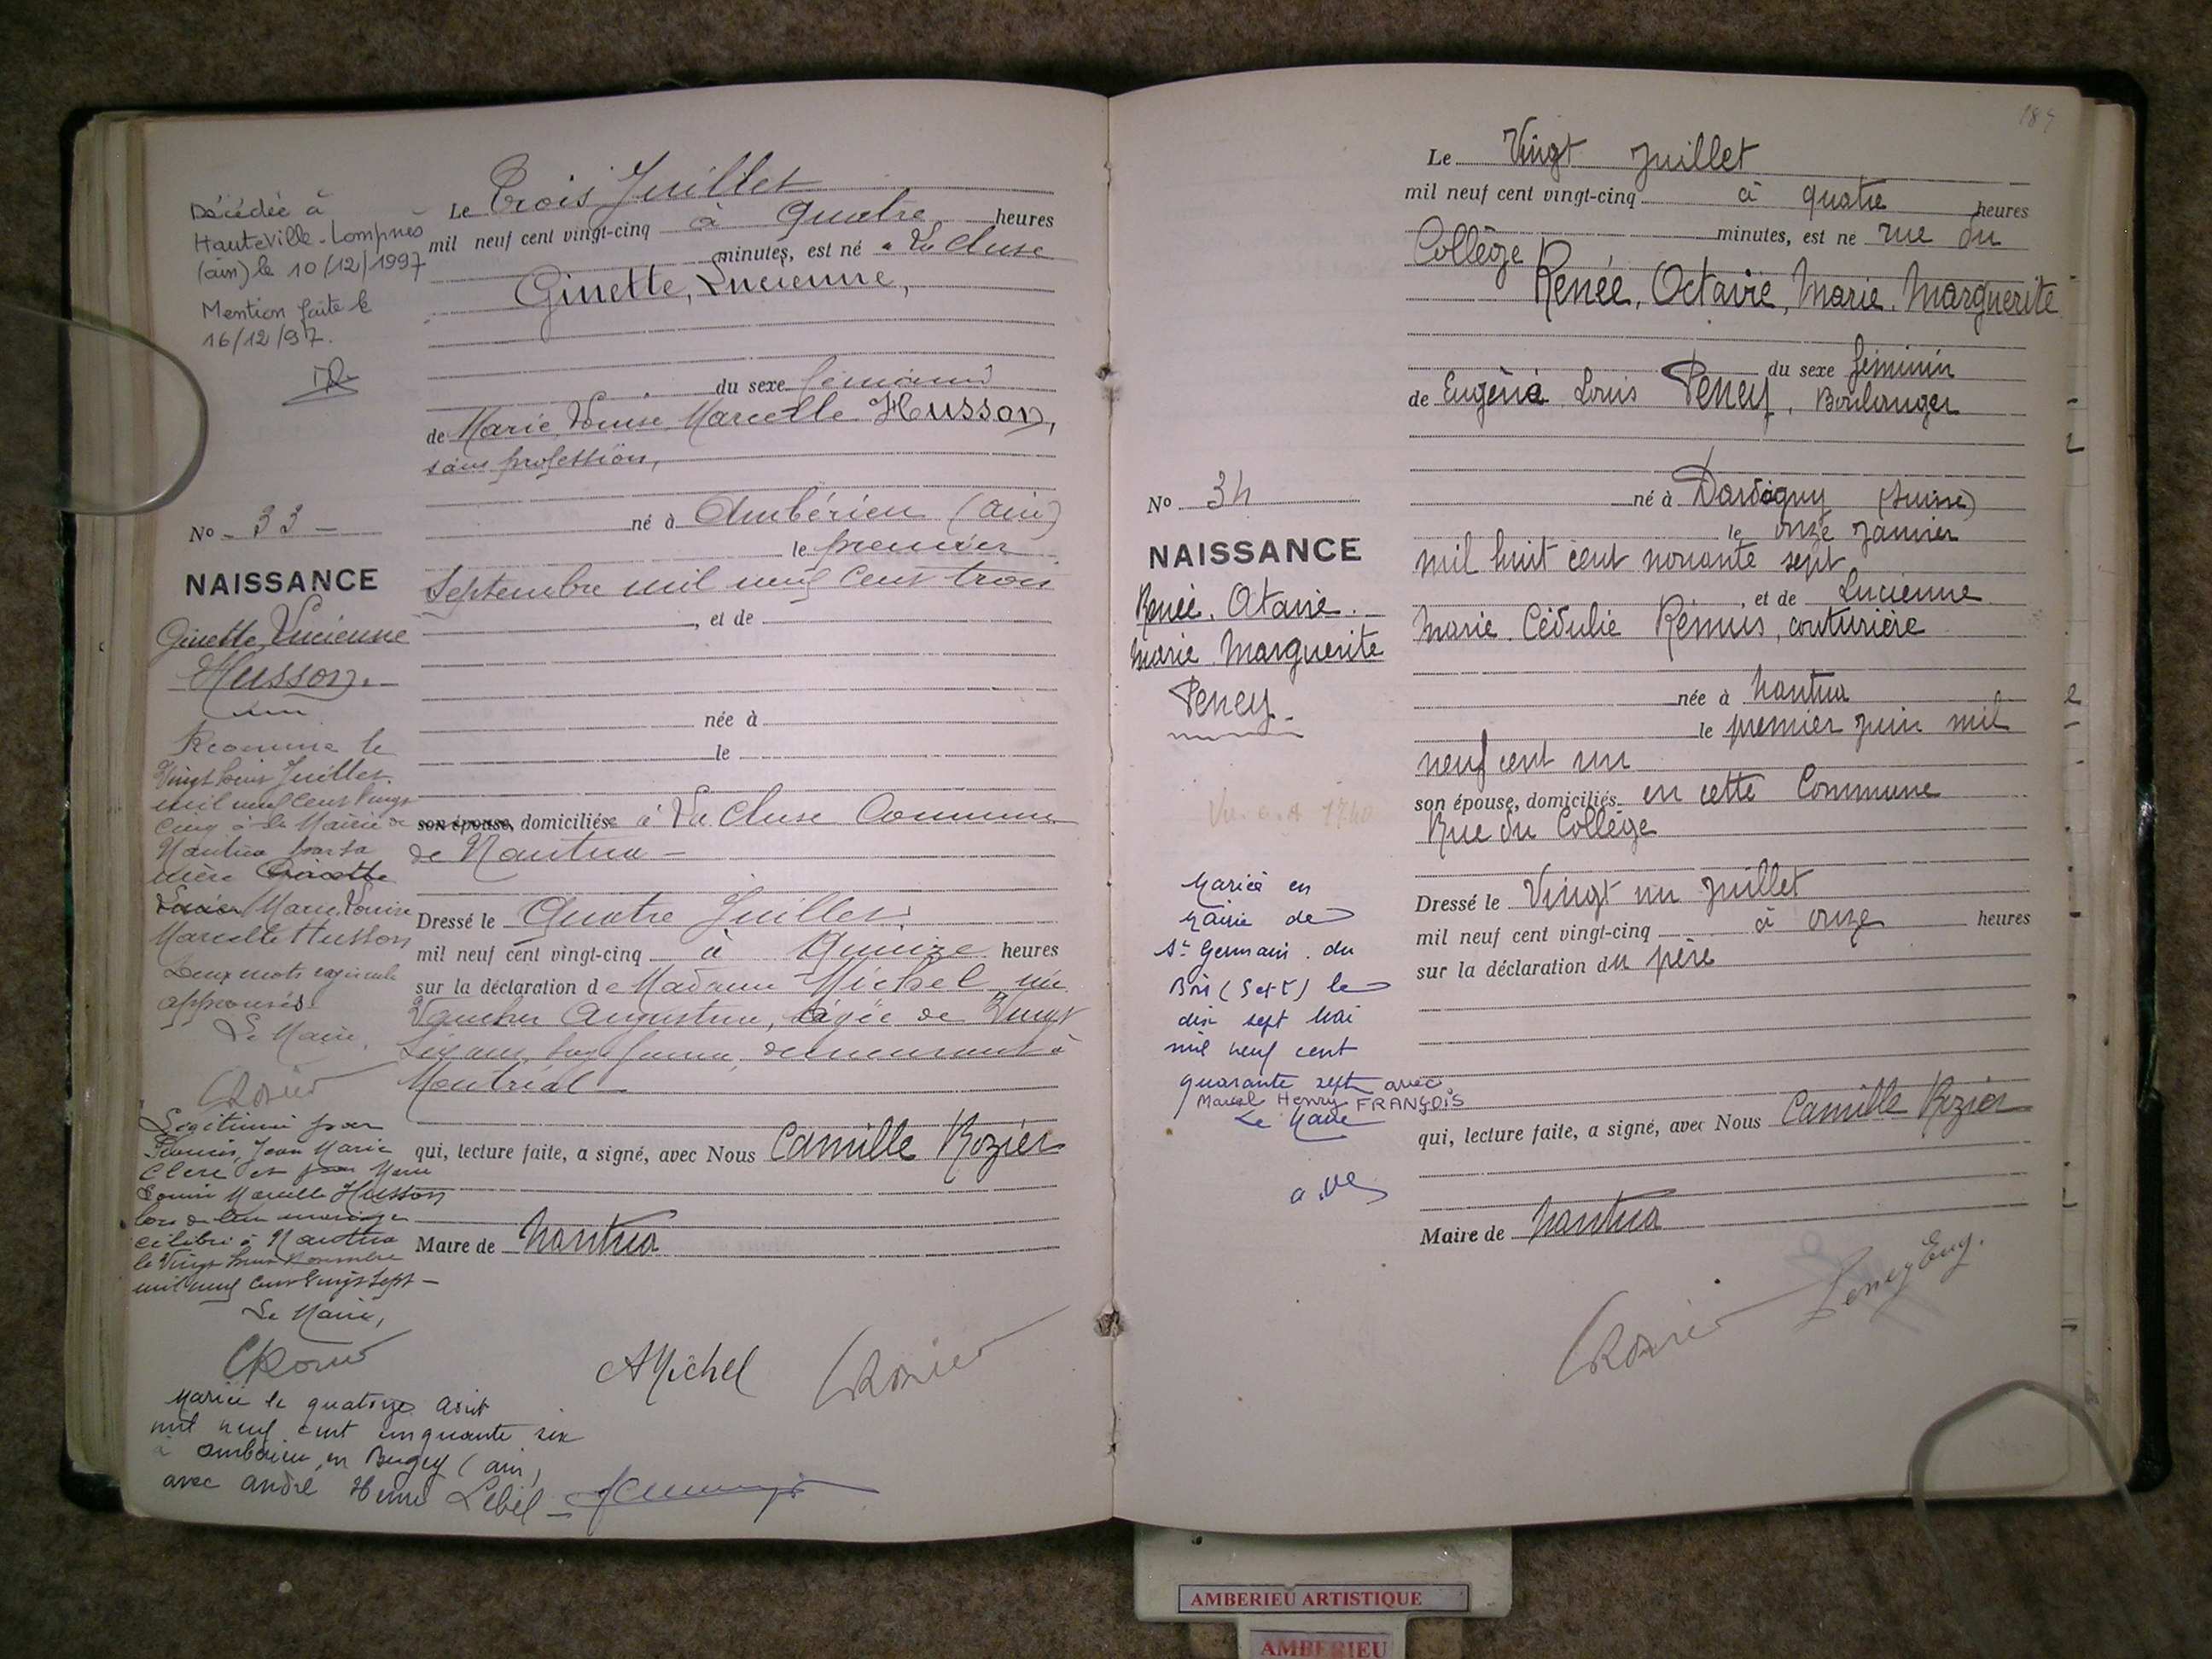 Décédée à
Hauteville-Lompnes
(ain) le 10/12/1997
Mention faite le
16/12/97.
No 33
NAISSANCE
Ginette, Lucienne
Husson.
Reconnue le
Vingt huit Juillet
mil neuf cent vingt
cinq à la Mairie de
Nantua par sa
mère
Marie Louise
Marcelle Husson
Deux mots rayés nuls
approuvés.
Le Maire,
CRozier
Légitimée par
Francis, Jean Marie
Clerc et Marie
Louise Marcelle Husson
lors de leur mariage
célébré à Nantua
le Vingt huit Novembre
mil neuf cent vingt sept
Le Maire,
CRozier
Mariée le quatorze août
mil neuf cent cinquante six
à Ambérieu en Bugey (ain)
avec André Henri Lebel
Le Trois Juillet
mil neuf cent vingt-cinq à Quatre heures
minutes, est né à La Cluse
Ginette, Lucienne,
du sexe féminin
de Marie Louise Marcelle Husson,
sans profession,
né à Ambérieu (ain)
le premier
Septembre mil neuf cent trois
, et de
née à
le
son épouse, domiciliés à La Cluse Commune
de Nantua
Dressé le Quatre Juillet
mil neuf cent vingt-cinq à Quinze heures
sur la déclaration de Madame Michel née
Vaucher Augustine, âgée de Vingt
Six ans, sage femme, demeurant à
Montréal
qui, lecture faite, a signé, avec Nous Camille Rozier
Maire de Nantua
AMichel CRozier
184
No 34
NAISSANCE
Renée. Otavie.
Marie Marguerite
Peney
Mariée en
Mairie de
St Germain du
Bois (S et L) le
dix sept Mai
mil neuf cent
quarante sept avec
Marcel Henry FRANÇOIS
Le Maire
Le Vingt Juillet
mil neuf cent vingt-cinq à quatre heures
minutes, est né rue du
Collège
Renée, Octavie, Marie, Marguerite
du sexe féminin
de Eugène Louis Peney, Boulanger
né à Dardagny (Suisse)
le onze Janvier
mil huit cent nonante sept
, et de Lucienne
Marie Cédulie Rémus, couturière
née à Nantua
le premier juin mil
neuf cent un
son épouse, domiciliés en cette Commune
Rue du Collège
Dressé le Vingt un Juillet
mil neuf cent vingt-cinq à onze heures
sur la déclaration du père
qui, lecture faite, a signé, avec Nous Camille Rozier
Maire de Nantua
CRozier Peney Eug.
AMBERIEU ARTISTIQUE
AMBERIEU